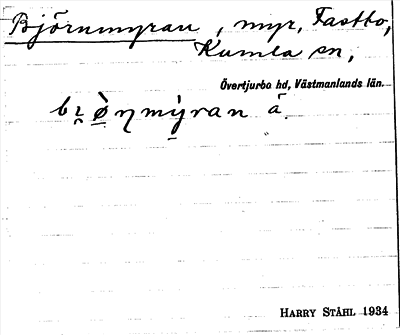 Björnmyran, myr, Fastbo,
Kumla sn,
Övertjurbo hd, Västmanlands län.
HARRY STÅHL 1934